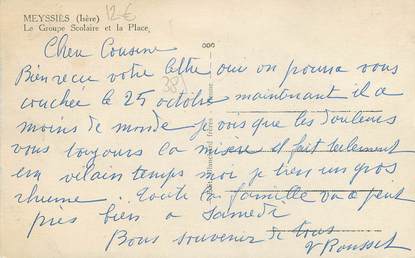 MEYSSIÈS (Isère) 12€
Le Groupe Scolaire et la Place
Cher Cousine
Bien recu votre lettre oui on pourra vous
couchée le 25 octobre maintenant il a
moins de monde je vois que les douleurs
vous toujours la misère il fait tellement
un vilain temps moi je tiens un gros
rhume ... toute la famille va a peut
près bien a Samedi
Bons souvenir de tous
Rousset